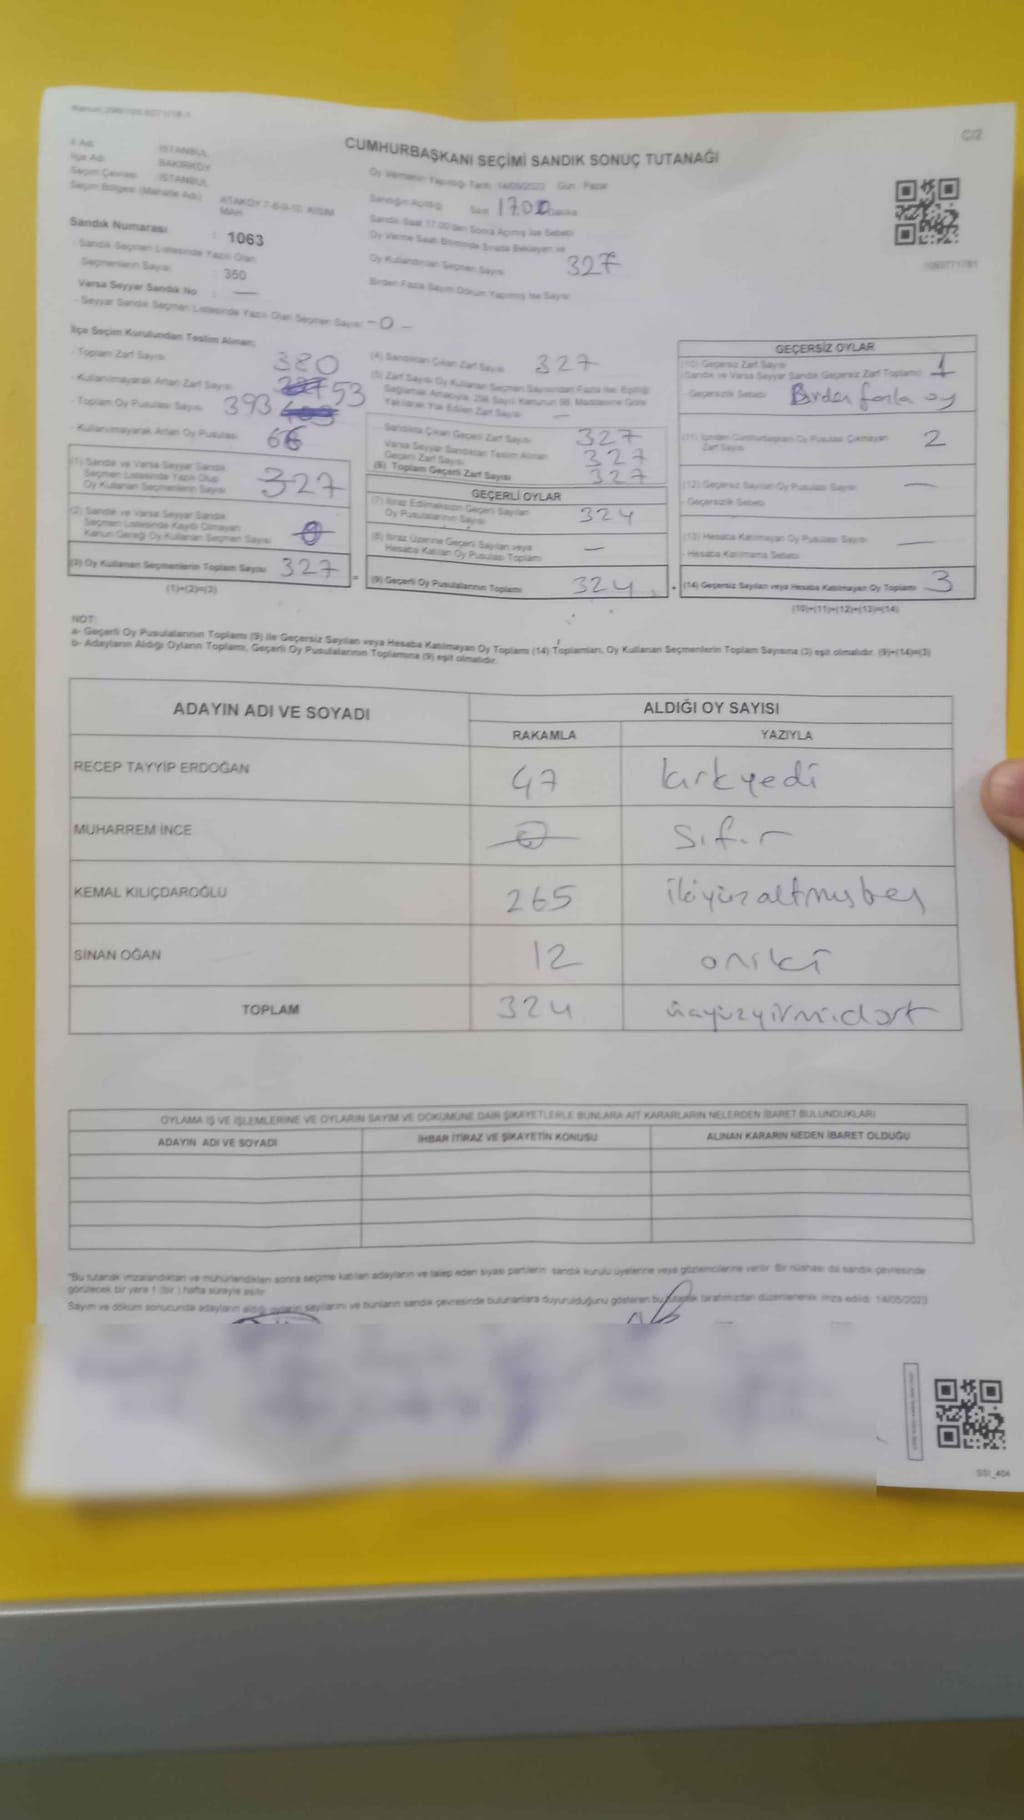 C/2
CUMHURBAŞKANI SEÇİMİ SANDIK SONUÇ TUTANAĞI
İl Adı : İSTANBUL
İlçe Adı : BAKIRKÖY
Seçim Çevresi : İSTANBUL
Seçim Bölgesi (Mahalle Adı) : ATAKÖY 7-8-9-10. KISIM MAH.
Sandık Numarası : 1063
- Sandık Seçmen Listesinde Yazılı Olan
Seçmenlerin Sayısı : 350
Varsa Seyyar Sandık No : —
- Seyyar Sandık Seçmen Listesinde Yazılı Olan Seçmen Sayısı : -0-
Oy Vermenin Yapıldığı Tarih: 14/05/2023 Gün : Pazar
Sandığın Açıldığı Saat 17.00 Dakika
Sandık Saat 17.00'den Sonra Açılmış İse Sebebi
Oy Verme Saati Bitiminde Sırada Bekleyen ve
Oy Kullandırılan Seçmen Sayısı 327
Birden Fazla Sayım Döküm Yapılmış İse Sayısı
İlçe Seçim Kurulundan Teslim Alınan;
- Toplam Zarf Sayısı 380
- Kullanılmayarak Artan Zarf Sayısı 53
- Toplam Oy Pusulası Sayısı 393
- Kullanılmayarak Artan Oy Pusulası 66
(1) Sandık ve Varsa Seyyar Sandık
Seçmen Listesinde Yazılı Olup
Oy Kullanan Seçmenlerin Sayısı 327
(2) Sandık ve Varsa Seyyar Sandık
Seçmen Listesinde Kayıtlı Olmayan
Kanun Gereği Oy Kullanan Seçmen Sayısı 0
(3) Oy Kullanan Seçmenlerin Toplam Sayısı 327
(1)+(2)=(3)
(4) Sandıktan Çıkan Zarf Sayısı 327
(5) Zarf Sayısı Oy Kullanan Seçmen Sayısından Fazla İse, Eşitliği
Sağlamak Amacıyla, 298 Sayılı Kanunun 98. Maddesine Göre
Yakılarak Yok Edilen Zarf Sayısı —
- Sandıkta Çıkan Geçerli Zarf Sayısı 327
Varsa Seyyar Sandıktan Teslim Alınan
Geçerli Zarf Sayısı 327
(6) Toplam Geçerli Zarf Sayısı 327
GEÇERLİ OYLAR
(7) İtiraz Edilmeksizin Geçerli Sayılan
Oy Pusulalarının Sayısı 324
(8) İtiraz Üzerine Geçerli Sayılan veya
Hesaba Katılan Oy Pusulası Toplamı —
(9) Geçerli Oy Pusulalarının Toplamı 324
GEÇERSİZ OYLAR
(10) Geçersiz Zarf Sayısı 1
(Sandık ve Varsa Seyyar Sandık Geçersiz Zarf Toplamı)
- Geçersizlik Sebebi Birden fazla oy
(11) İçinden Cumhurbaşkanı Oy Pusulası Çıkmayan
Zarf Sayısı 2
(12) Geçersiz Sayılan Oy Pusulası Sayısı —
- Geçersizlik Sebebi
(13) Hesaba Katılmayan Oy Pusulası Sayısı —
- Hesaba Katılmama Sebebi
(14) Geçersiz Sayılan veya Hesaba Katılmayan Oy Toplamı 3
(10)+(11)+(12)+(13)=(14)
NOT:
a- Geçerli Oy Pusulalarının Toplamı (9) ile Geçersiz Sayılan veya Hesaba Katılmayan Oy Toplamı (14) Toplamları, Oy Kullanan Seçmenlerin Toplam Sayısına (3) eşit olmalıdır. (9)+(14)=(3)
b- Adayların Aldığı Oyların Toplamı, Geçerli Oy Pusulalarının Toplamına (9) eşit olmalıdır.
ADAYIN ADI VE SOYADI ALDIĞI OY SAYISI
RAKAMLA YAZIYLA
RECEP TAYYİP ERDOĞAN 47 kırkyedi
MUHARREM İNCE 0 sıfır
KEMAL KILIÇDAROĞLU 265 ikiyüzaltmışbeş
SİNAN OĞAN 12 oniki
TOPLAM 324 üçyüzyirmidört
OYLAMA İŞ VE İŞLEMLERİNE VE OYLARIN SAYIM VE DÖKÜMÜNE DAİR ŞİKAYETLERLE BUNLARA AİT KARARLARIN NELERDEN İBARET BULUNDUKLARI
ADAYIN ADI VE SOYADI İHBAR İTİRAZ VE ŞİKAYETİN KONUSU ALINAN KARARIN NEDEN İBARET OLDUĞU
"Bu tutanak imzalandıktan ve mühürlendikten sonra seçime katılan adayların ve talep eden siyasi partilerin sandık kurulu üyelerine veya gözlemcilerine verilir. Bir nüshası da sandık çevresinde
görülecek bir yere 1 (bir) hafta süreyle asılır.
Sayım ve döküm sonucunda adayların aldığı oyların sayılarını ve bunların sandık çevresinde bulunanlara duyurulduğunu gösteren bu tutanak tarafımızdan düzenlenerek imza edildi. 14/05/2023
SSI_404